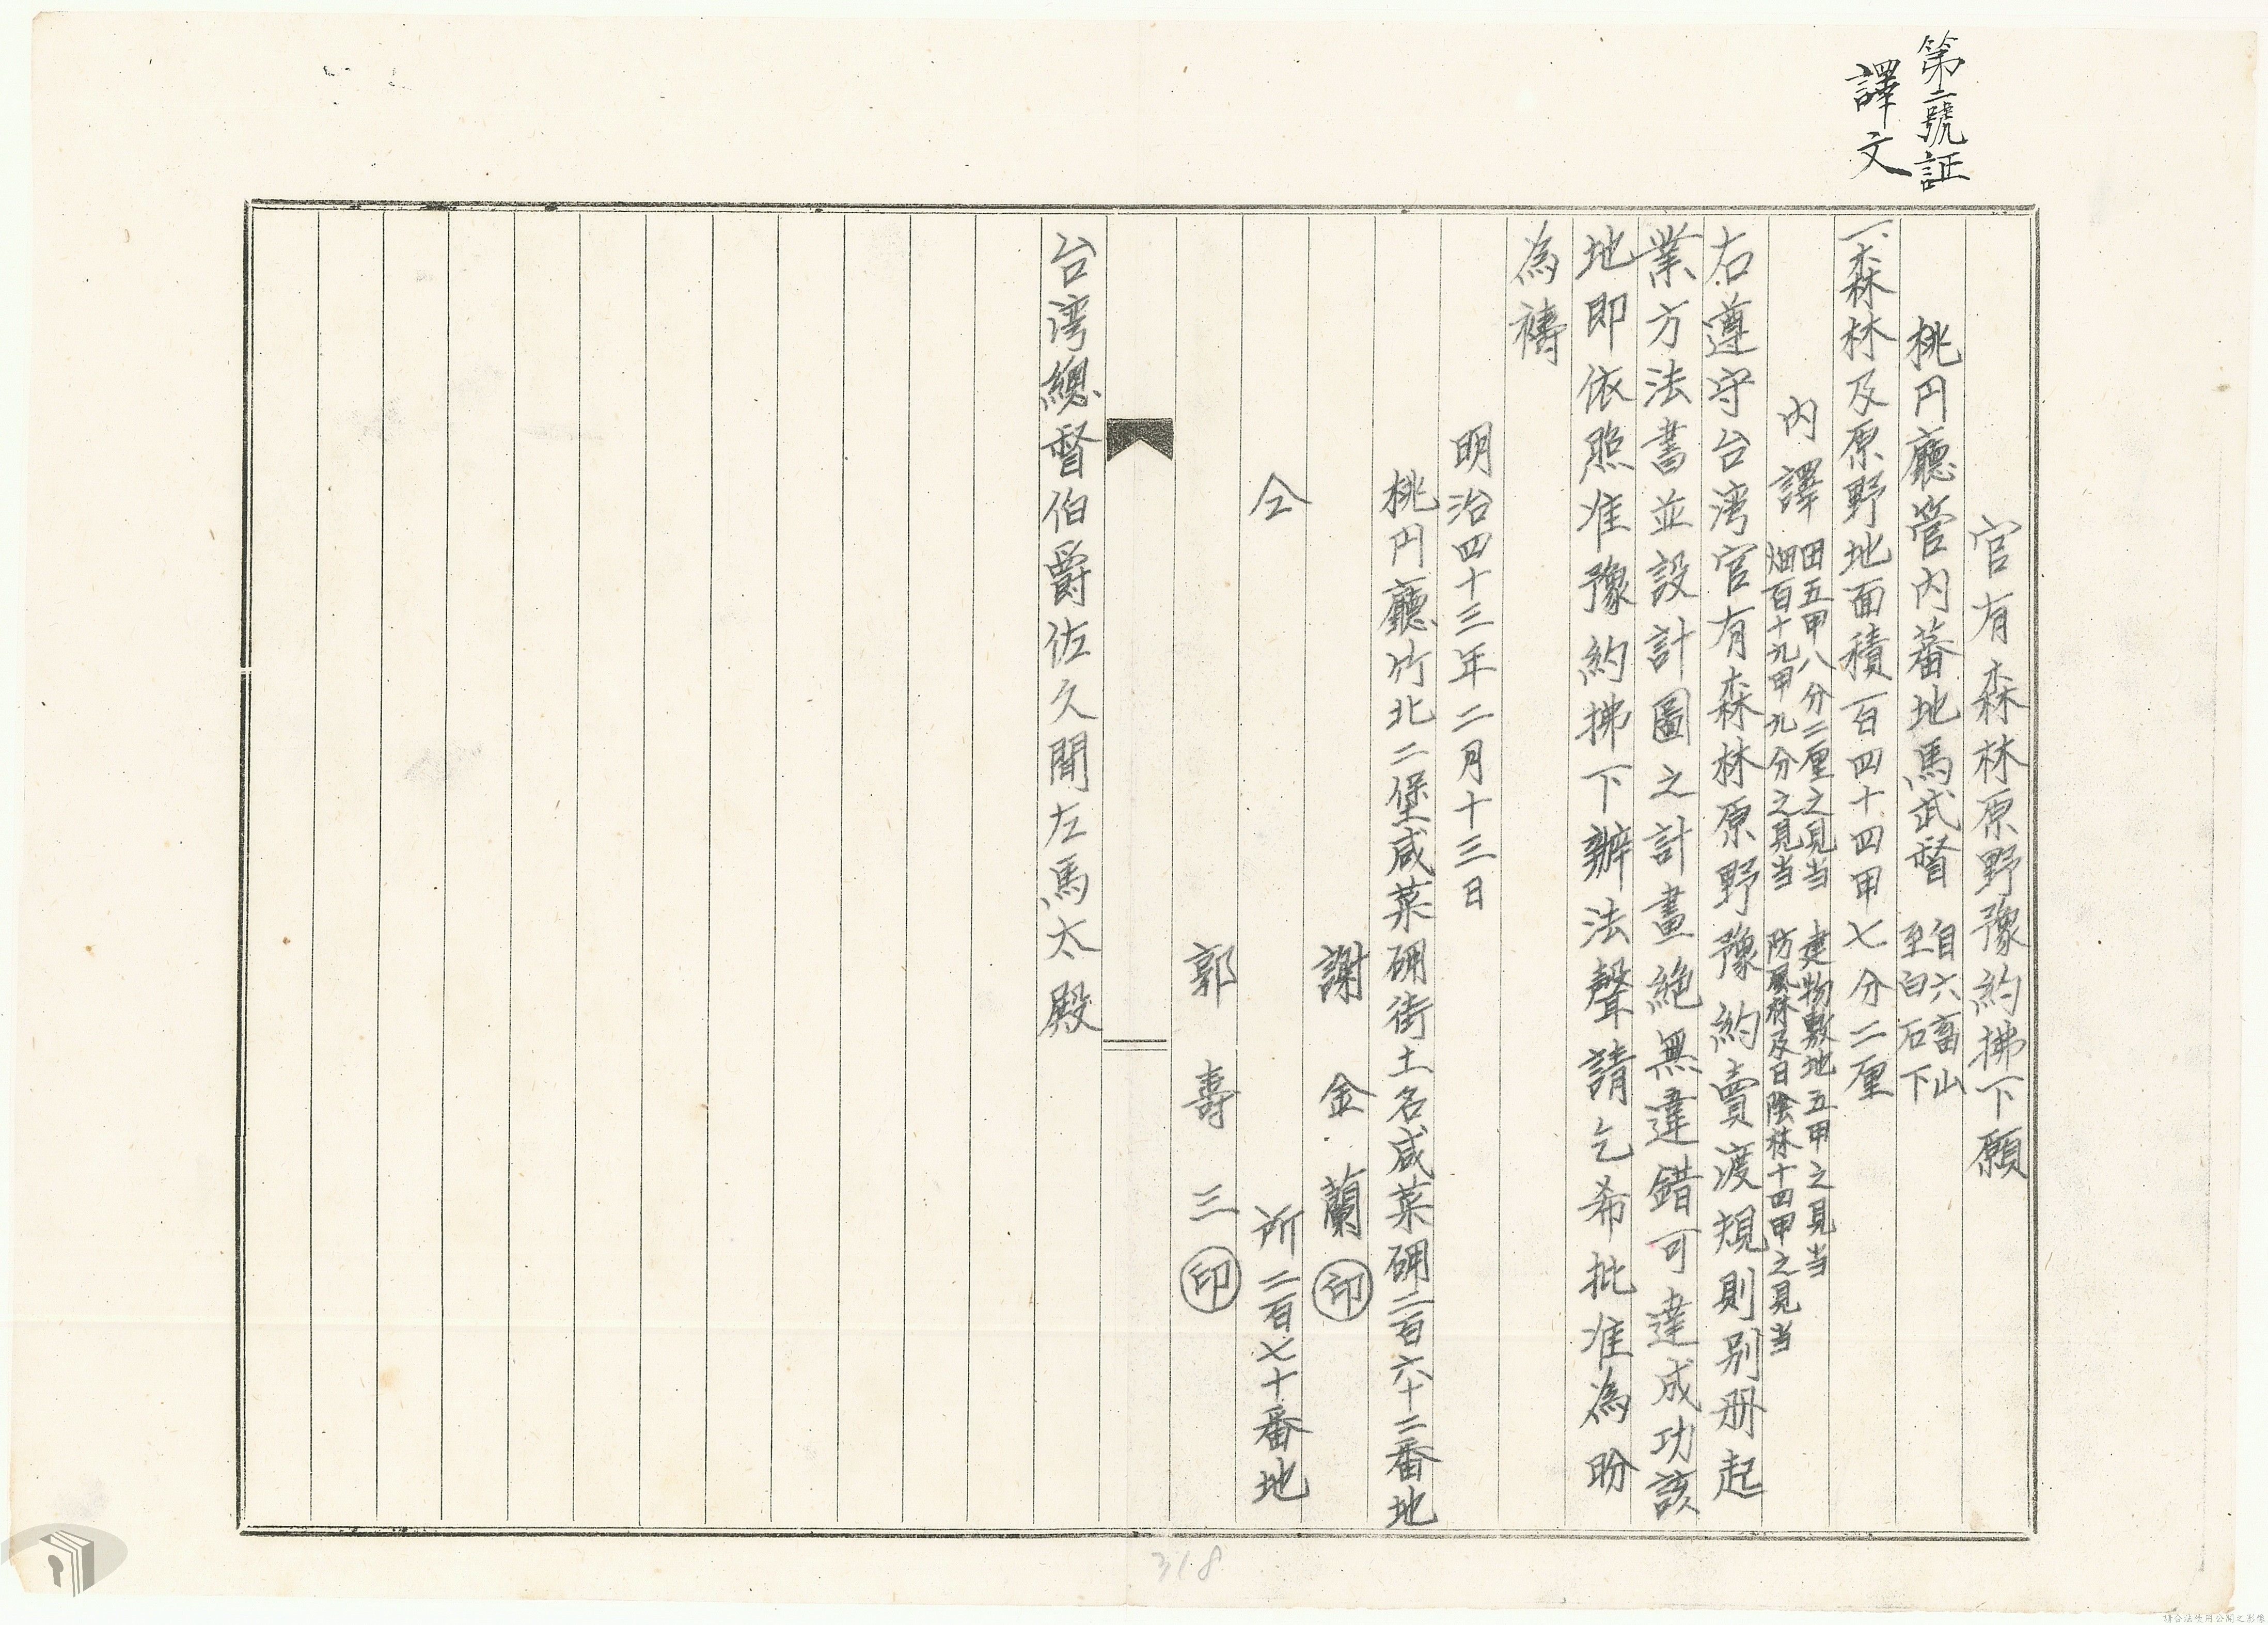 第二號証
譯文
官有森林原野豫約拂下願
桃円廳管内蕃地馬武督 自六畜山
至白石下
一、森林及原野地面積百四十四甲七分二厘
内譯 田五甲八分二厘之見当 建物敷地五甲之見当
畑百十九甲九分之見当 防風林及日陰林十四甲之見当
右遵守台湾官有森林原野豫約賣渡規則別册起
業方法書並設計圖之計畫絶無違錯可達成功該
地即依照准豫約拂下辦法聲請乞希批准為盼
為禱
明治四十三年二月十三日
桃円廳竹北二堡咸菜硼街土名咸菜硼二百六十二番地
謝金蘭㊞
仝 所二百七十番地
郭壽三㊞
台湾總督伯爵佐久間左馬太殿
318
請合法使用公開之影像